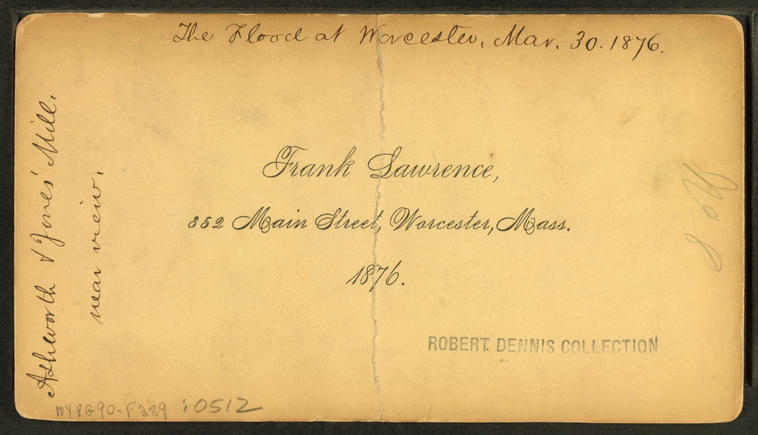 The Flood at Worcester, Mar. 30. 1876.
Ashworth & Jones' Mill.
near view.
Frank Lawrence,
352 Main Street, Worcester, Mass.
1876.
No. 8
ROBERT DENNIS COLLECTION
MYPG90-F289 :0512